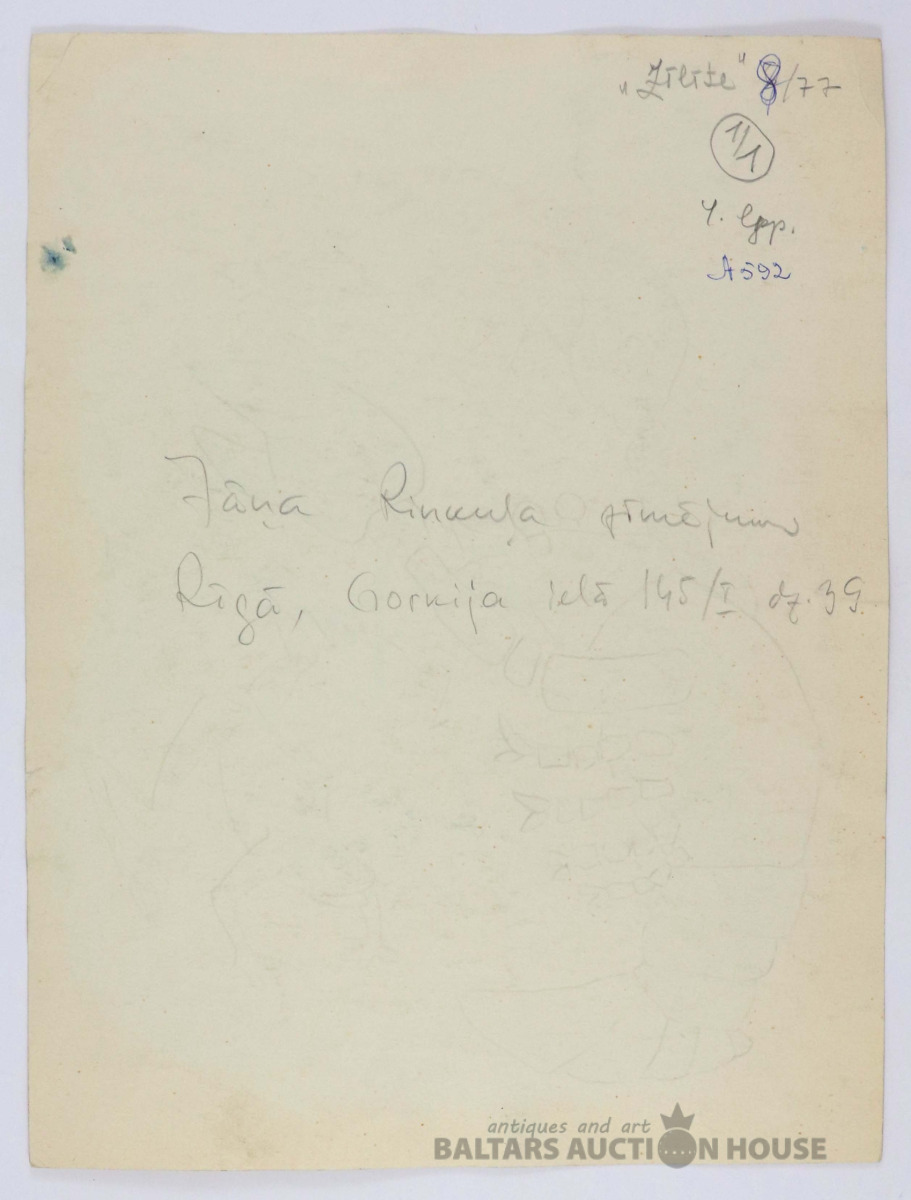 „Zīlīte" 8/77
1/1
4. lpp.
A592
Jāņa Rinkuļa zīmējums
Rīgā, Gorkija ielā 145/I dz. 39.
antiques and art
BALTARS AUCTION HOUSE